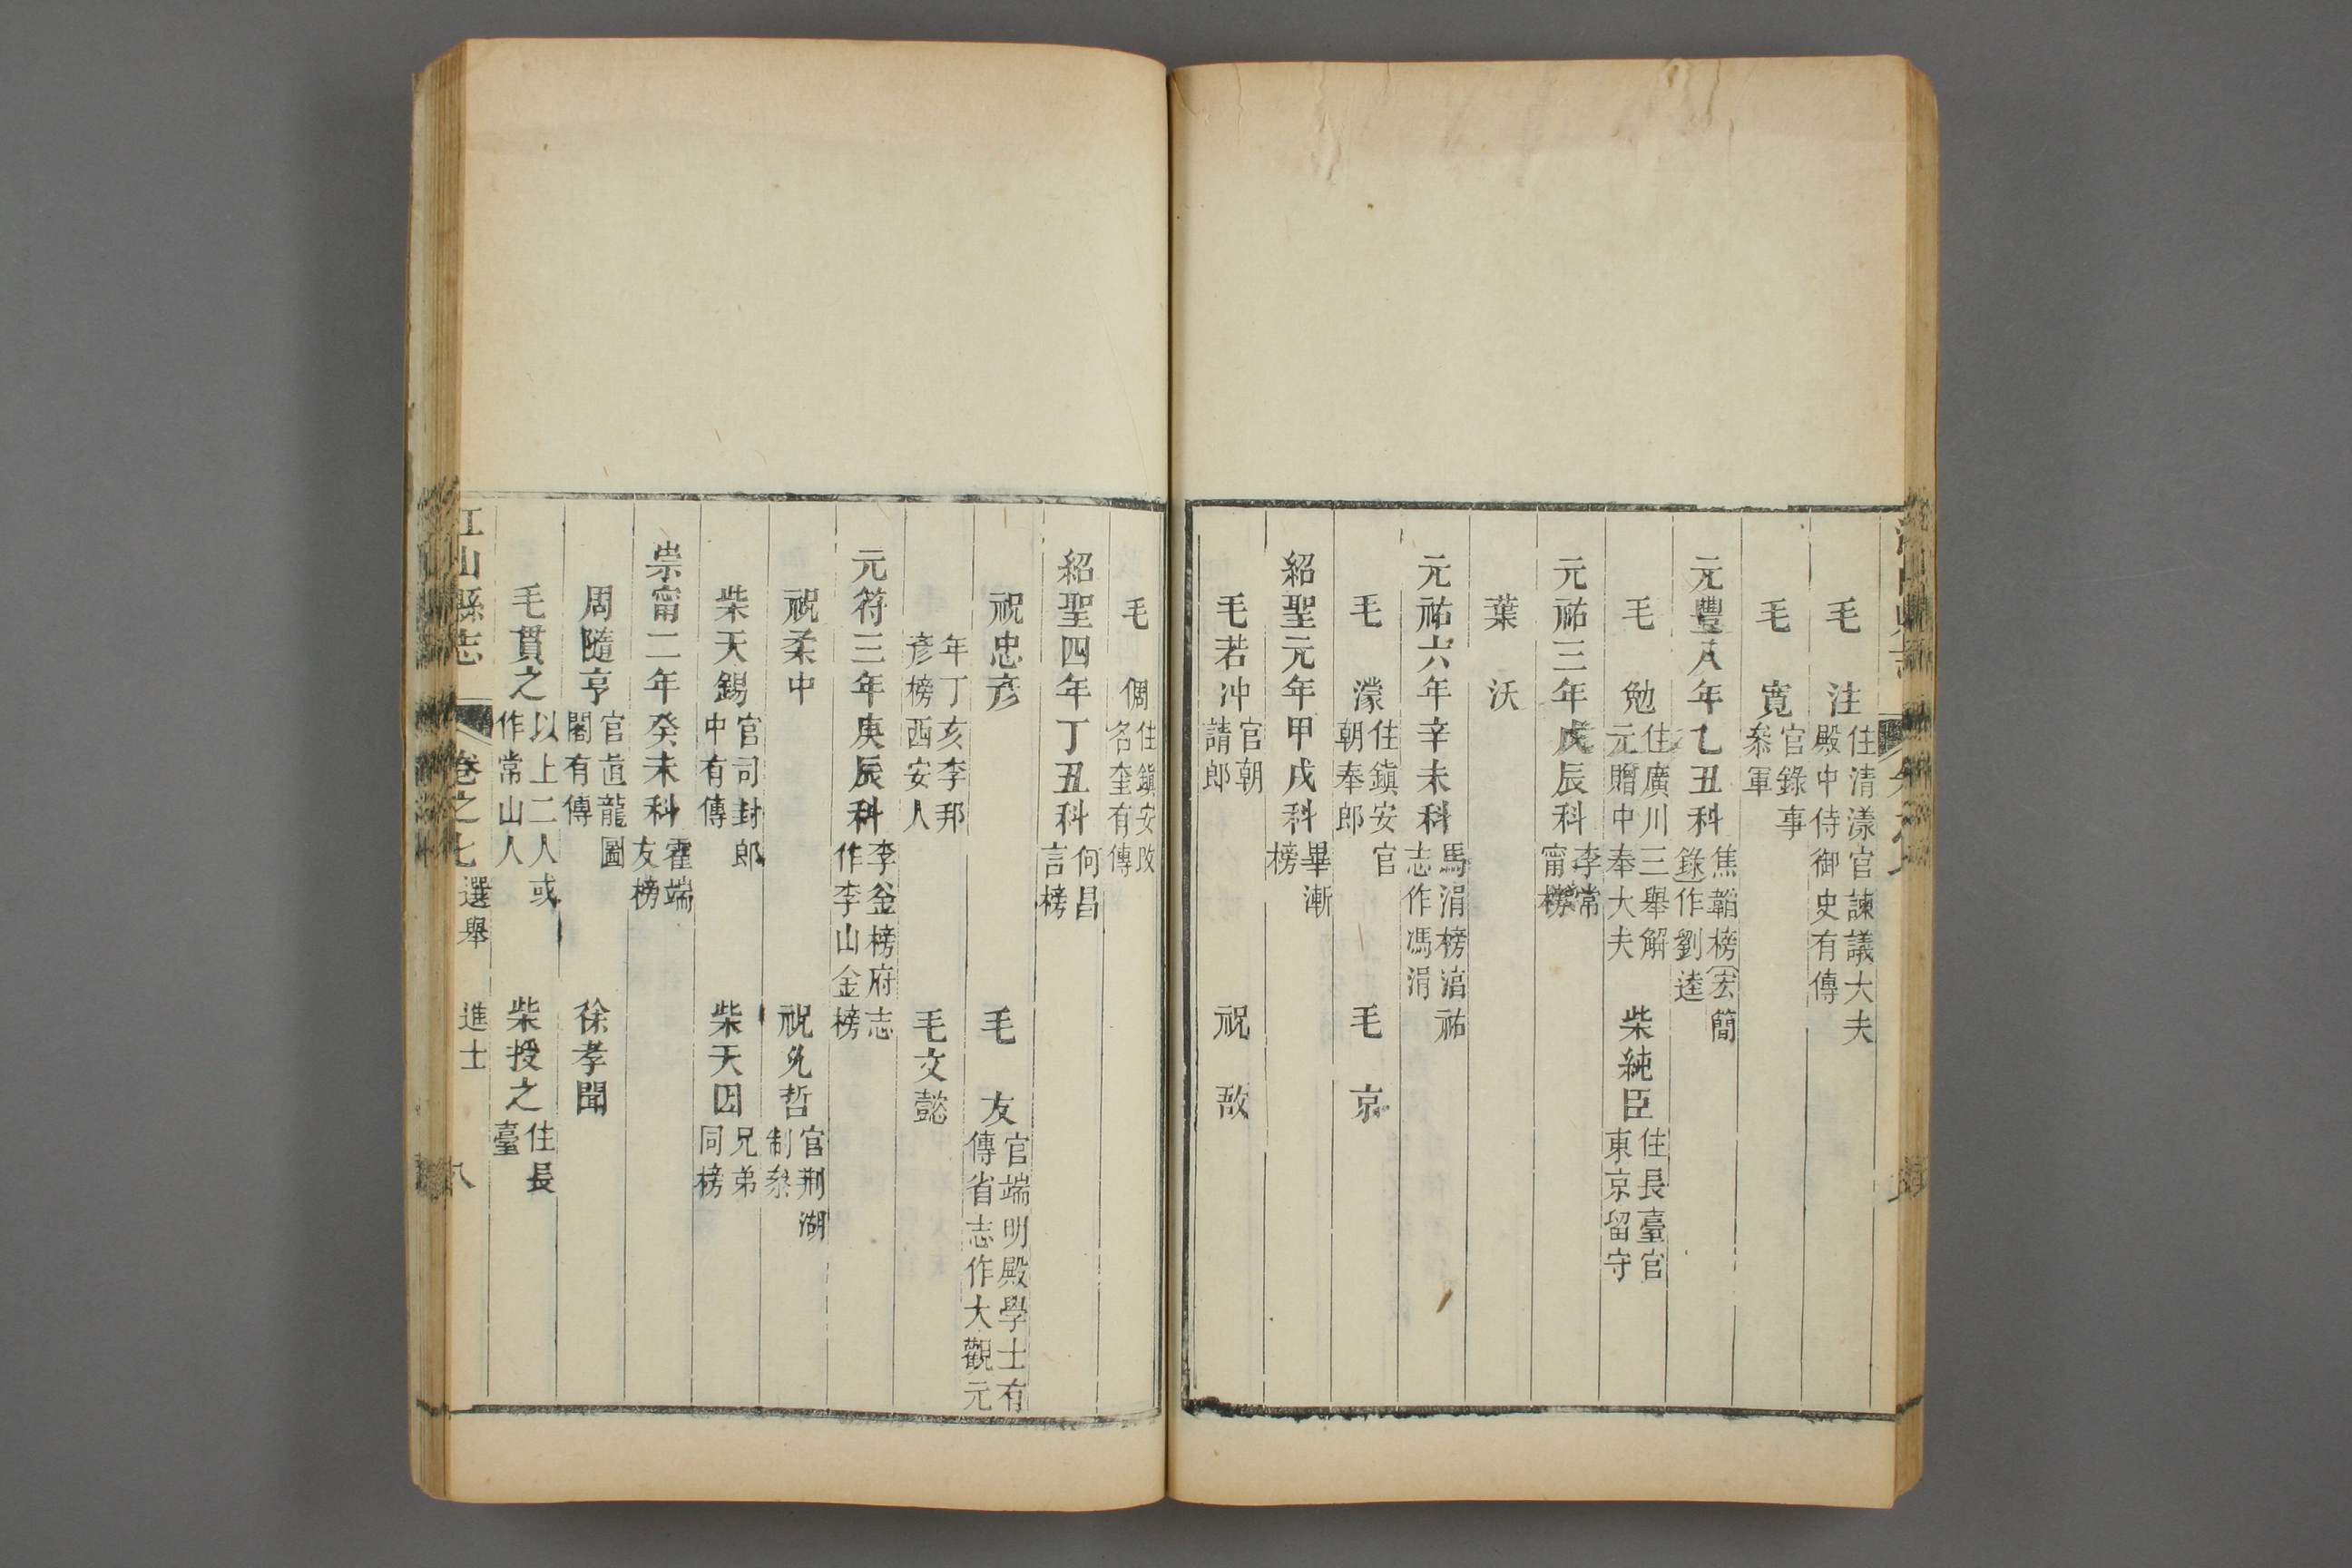 毛　注住清漾官諫議大夫殿中侍御史有傳
毛　寬官錄事叅軍
元豐八年乙丑科焦蹈榜宏簡錄作劉逵
毛　勉住廣川三舉解元贈中奉大夫　柴純臣住長臺官東京留守
元祐三年戊辰科李常甯榜
葉　沃
元祐六年辛未科馬涓榜浯祐志作馮涓
毛　濛住鎮安官朝奉郎　毛　京
紹聖元年甲戌科畢漸榜
毛若冲官朝請郎　祝　敔
毛　倜住鎮安改名奎有傳
紹聖四年丁丑科何昌言榜
祝忠彥　毛　友官端明殿學士有傳省志作大觀元
年丁亥李邦彥榜西安人　毛文懿
元符三年庚辰科李釡榜府志作李山金榜
祝柔中　祝允哲官荆湖制叅
柴天錫官司封郎中有傳　柴天因兄弟同榜
崇甯二年癸未科霍端友榜
周隨亨官直龍圖閣有傳　徐孝聞
毛貫之以上二人或作常山人　柴授之住長臺
江山縣志　卷之七　選舉　進士　八